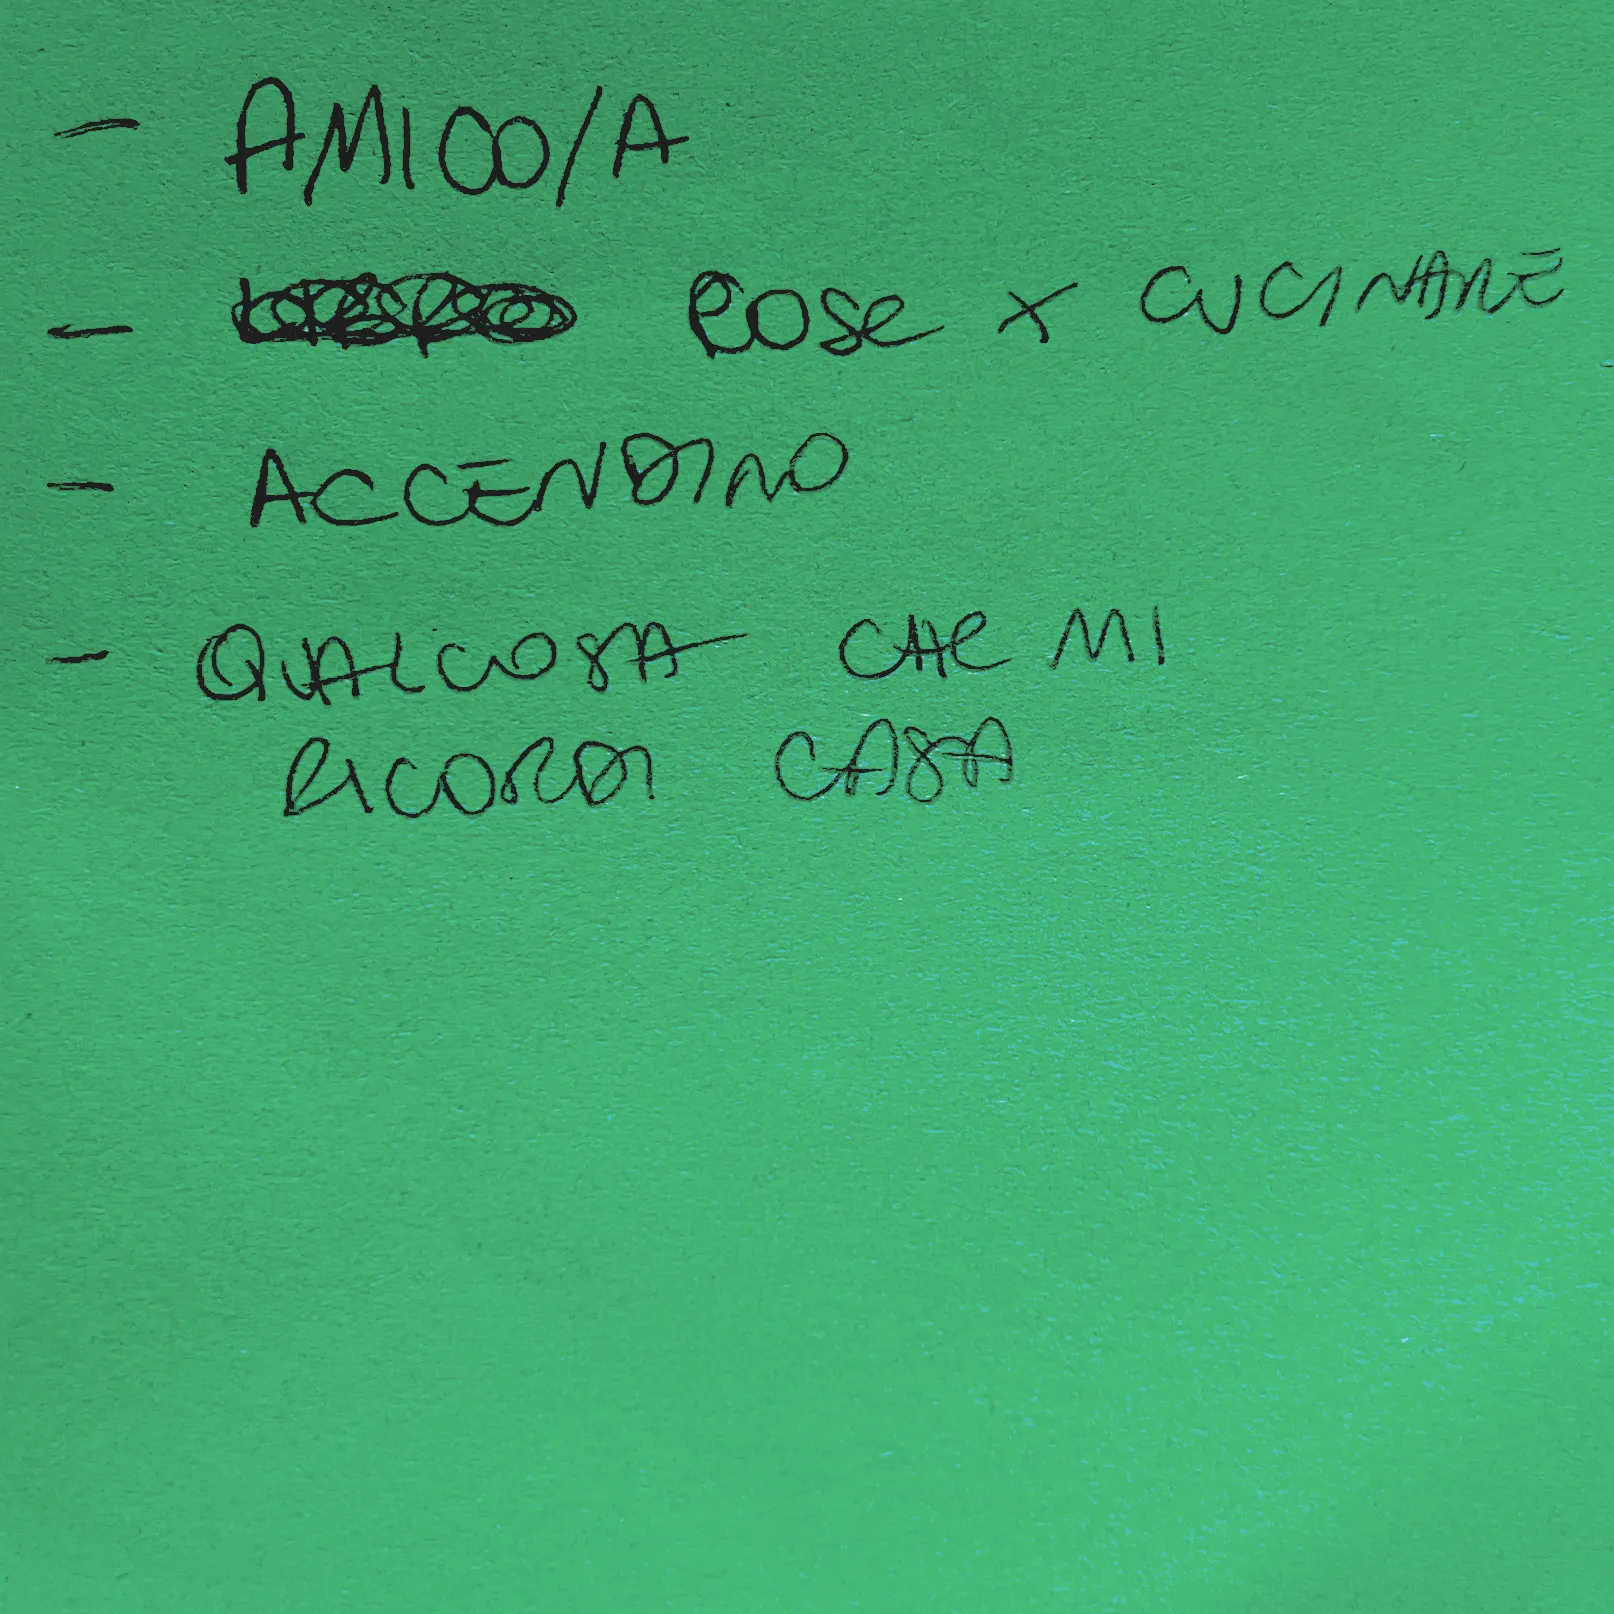 - AMICO/A
- COSE X CUCINARE
- ACCENDINO
- QUALCOSA CHE MI
RICORDI CASA